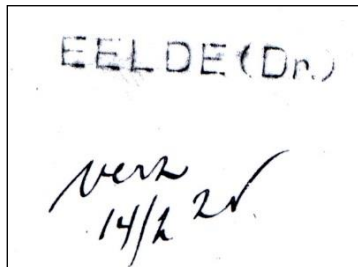 EELDE (Dr.)
verz
14/2 2✓